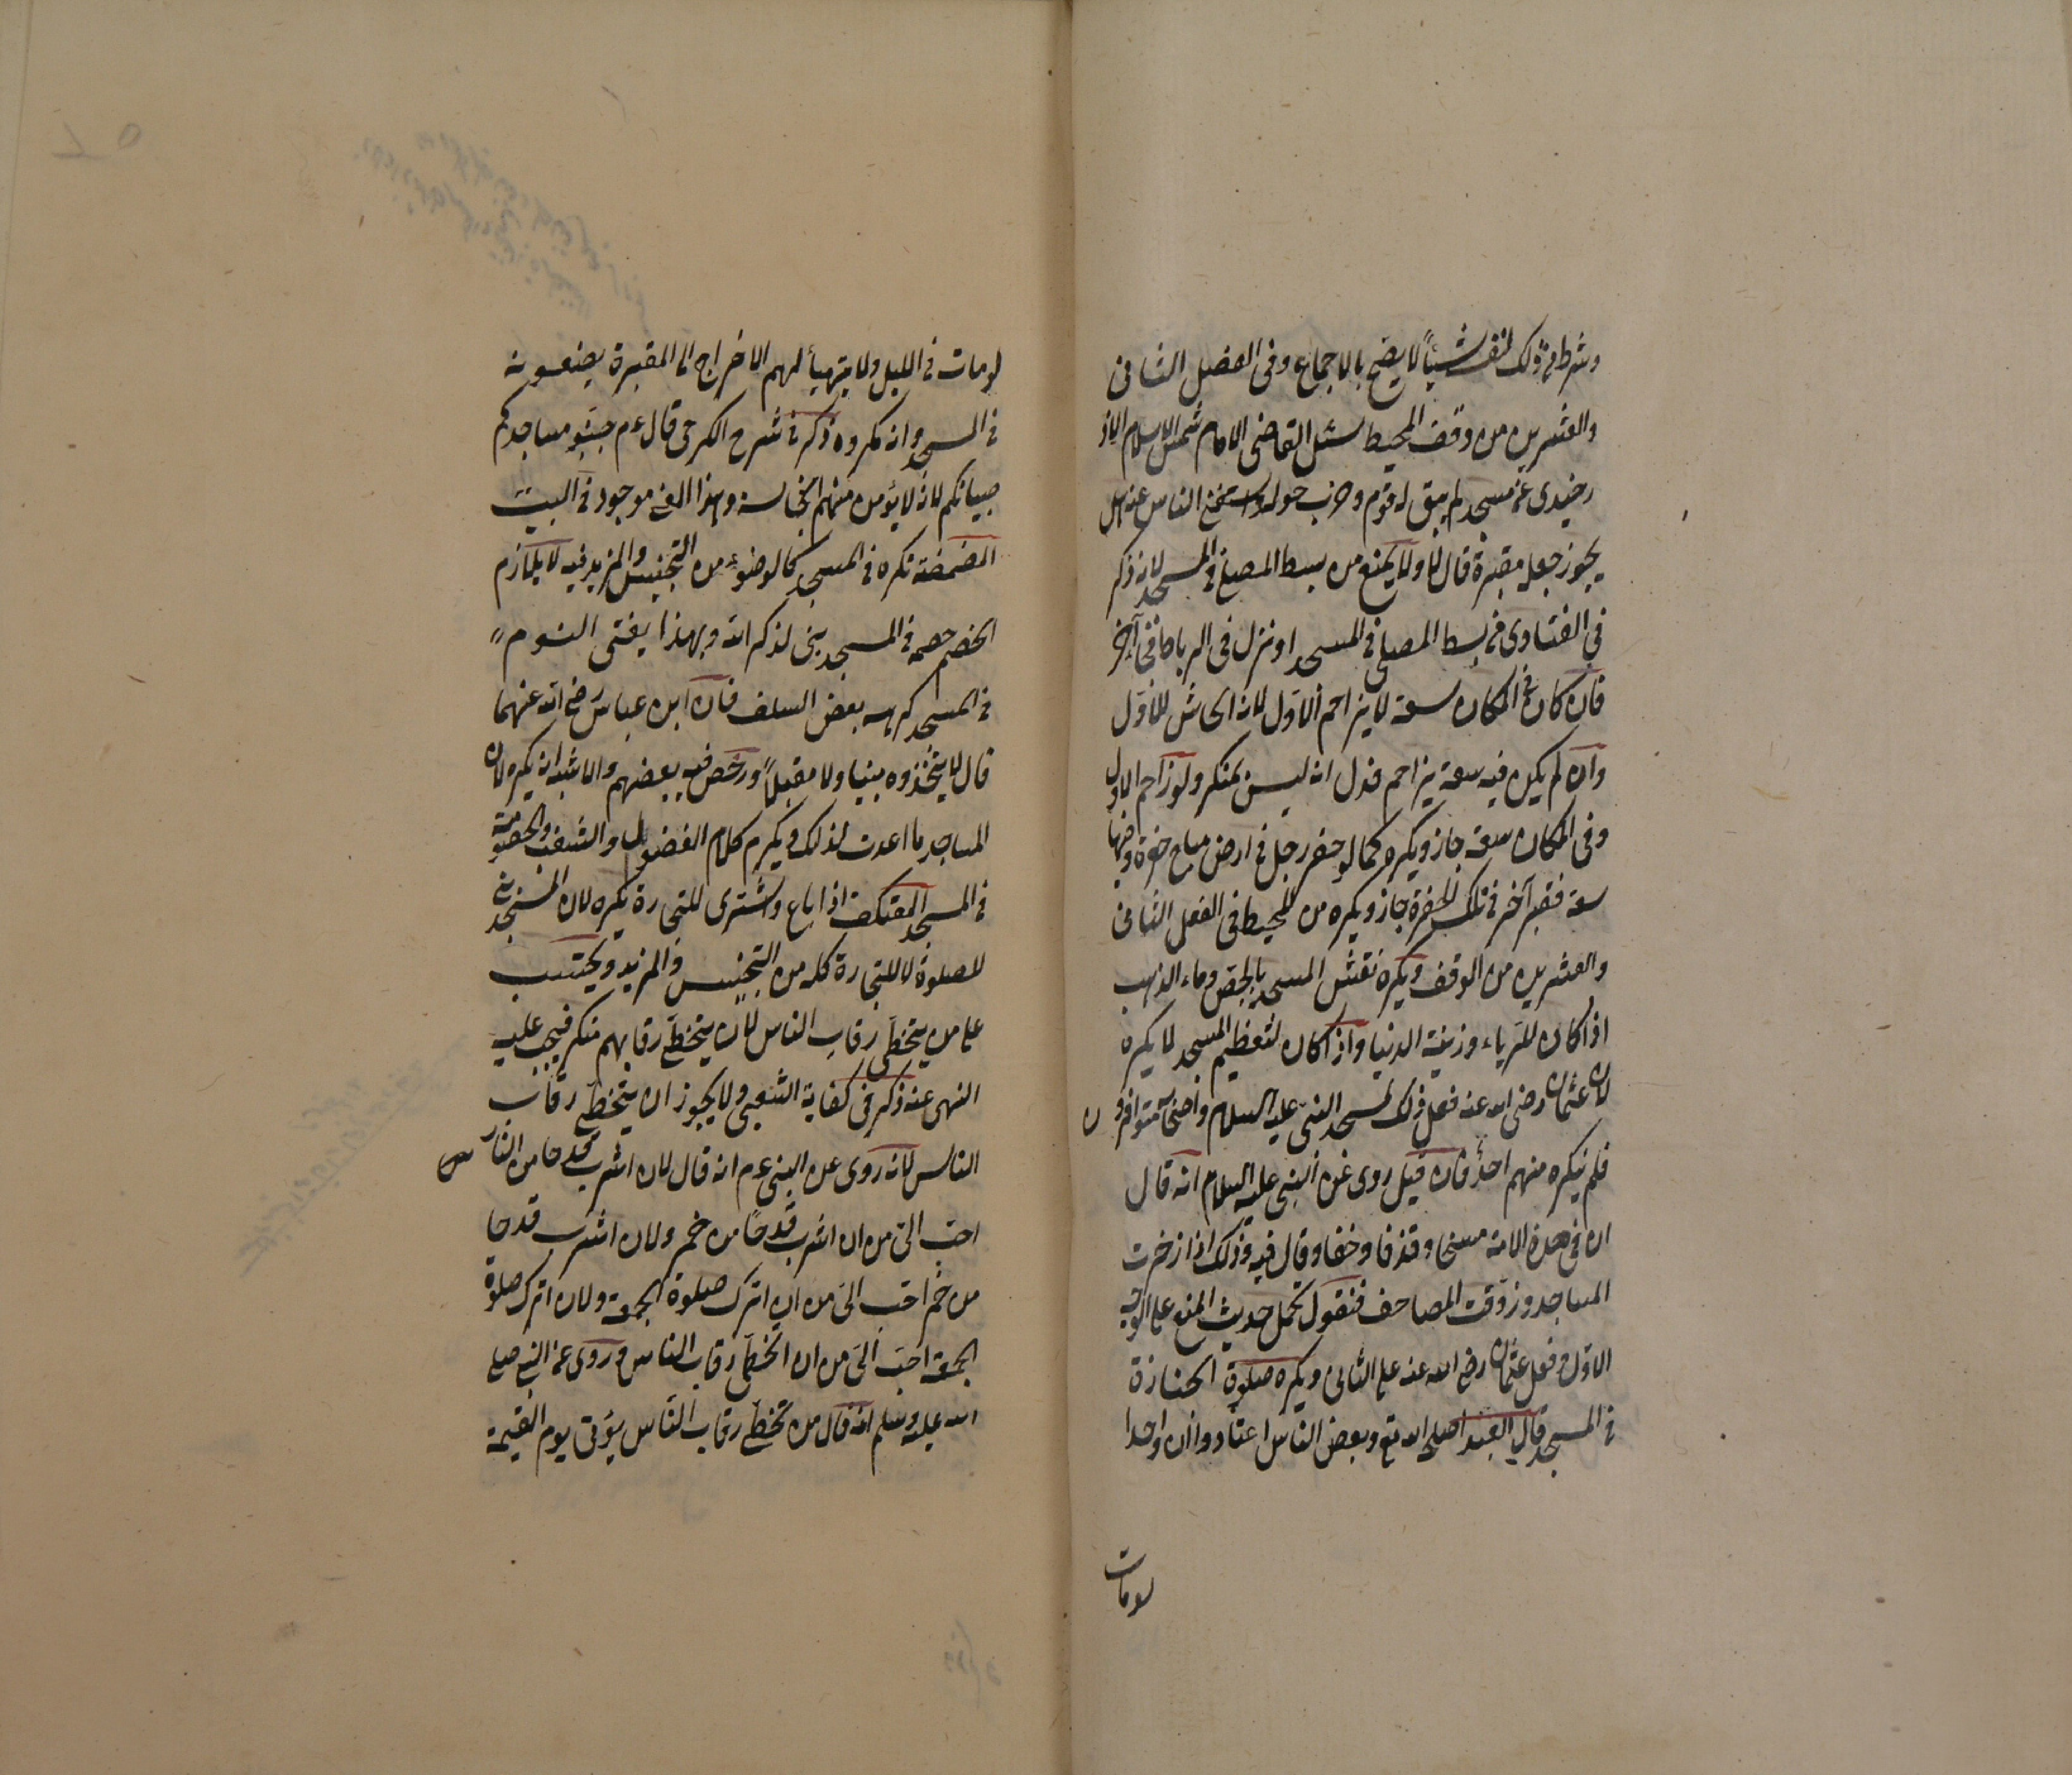 وشرط فى ذلك لنفسه شيأً لا يصح بالاجماع وفى الفصل الثانى
والعشرين من وقف المحيط سئل القاضى الامام شمس الاسلام الاوز
جندى عن مسجد لم يبق له قوم وخرب حوله واستغنى الناس عنه هل
يجوز جعله مقبرة قال لا ولا يمنع من بسط المصلى فى المسجد لانه ذكر
فى الفتاوى من بسط المصلى فى المسجد او نزل فى الرباط فجئ آخر
فان كان فى المكان سعة لا يزاحم الاول لانه ايحاش للاول
وان لم يكن فيه سعة يزاحم فدل انه ليس بمنكر ولو زاحم الاول
وفى المكان سعة جاز ويكره كما لو حفر رجل فى ارض مباح حفرة وفيها
سعة فقبر آخر فى تلك الحفرة جاز ويكره من المحيط فى الفصل الثانى
والعشرين من الوقف ويكره نقش المسجد بالجص وماء الذهب
اذا كان للرياء وزينة الدنيا واذا كان لتعظيم المسجد لا يكره
لان عثمان رضى الله عنه فعل ذلك لمسجد النبى عليه السلام واصحابه متوافرون
فلم ينكره منهم احد فان قيل روى عن النبى عليه السلام انه قال
ان فى هذه الامة مسخا وقذفا وخسفا وقال فيه وذلك اذا زخرفت
المساجد وزوقت المصاحف فنقول يحمل حديث المنع على الوجه
الاول وفعل عثمان رضى الله عنه على الثانى ويكره صلوة الجنازة
فى المسجد قال العبد اصلحه الله تع وبعض الناس اعتادوا ان واحدا
لومات
لومات فى الليل ولا يتهيأ لهم الاخراج الى المقبرة يضعونه
فى المسجد وانه مكروه ذكر فى شرح الكرخى قال ءم جنبو مساجدكم
صبيانكم لانه لا يؤمن منهم النجاسة وهذا المعنى موجود فى الميت
المضمضة تكره فى المسجد كالوضوء من التجنيس والمزيد فيه لا يلازم
الخصم خصمه فى المسجد بنى لذكر الله وبهذا يفتى النوم
فى المسجد كرهه بعض السلف فان ابن عباس رضى الله عنهما
قال لا يتخذوه مبيتا ولا مقيلاً ورخص فيه بعضهم والاشبه انه يكره لان
المساجد ما اعدت لذلك ويكره كلام الفضول والشغب والخصومة
فى المسجد المعتكف اذا باع واشترى للتجارة يكره لان المسجد بنى
للصلوة لا للتجارة كله من التجنيس والمزيد ويحتسب
على من يتخطى رقاب الناس لان يتخطى رقابهم منكر فيجب عليه
النهى عنه ذكر فى كفاية الشعبى ولا يجوز ان يتخطى رقاب
الناس لانه روى عن النبى ءم انه قال لان اشرب قدحا من النار
احب الى من ان اشرب قدحًا من خمر ولان اشرب قدحا
من خمر احب الى من ان اترك صلوة الجمعة ولان اترك صلوة
الجمعة احب الى من ان اتخطى رقاب الناس وروى عن النبى صلى
الله عليه وسلم انه قال من تخطى رقاب الناس يؤتى يوم القيمة